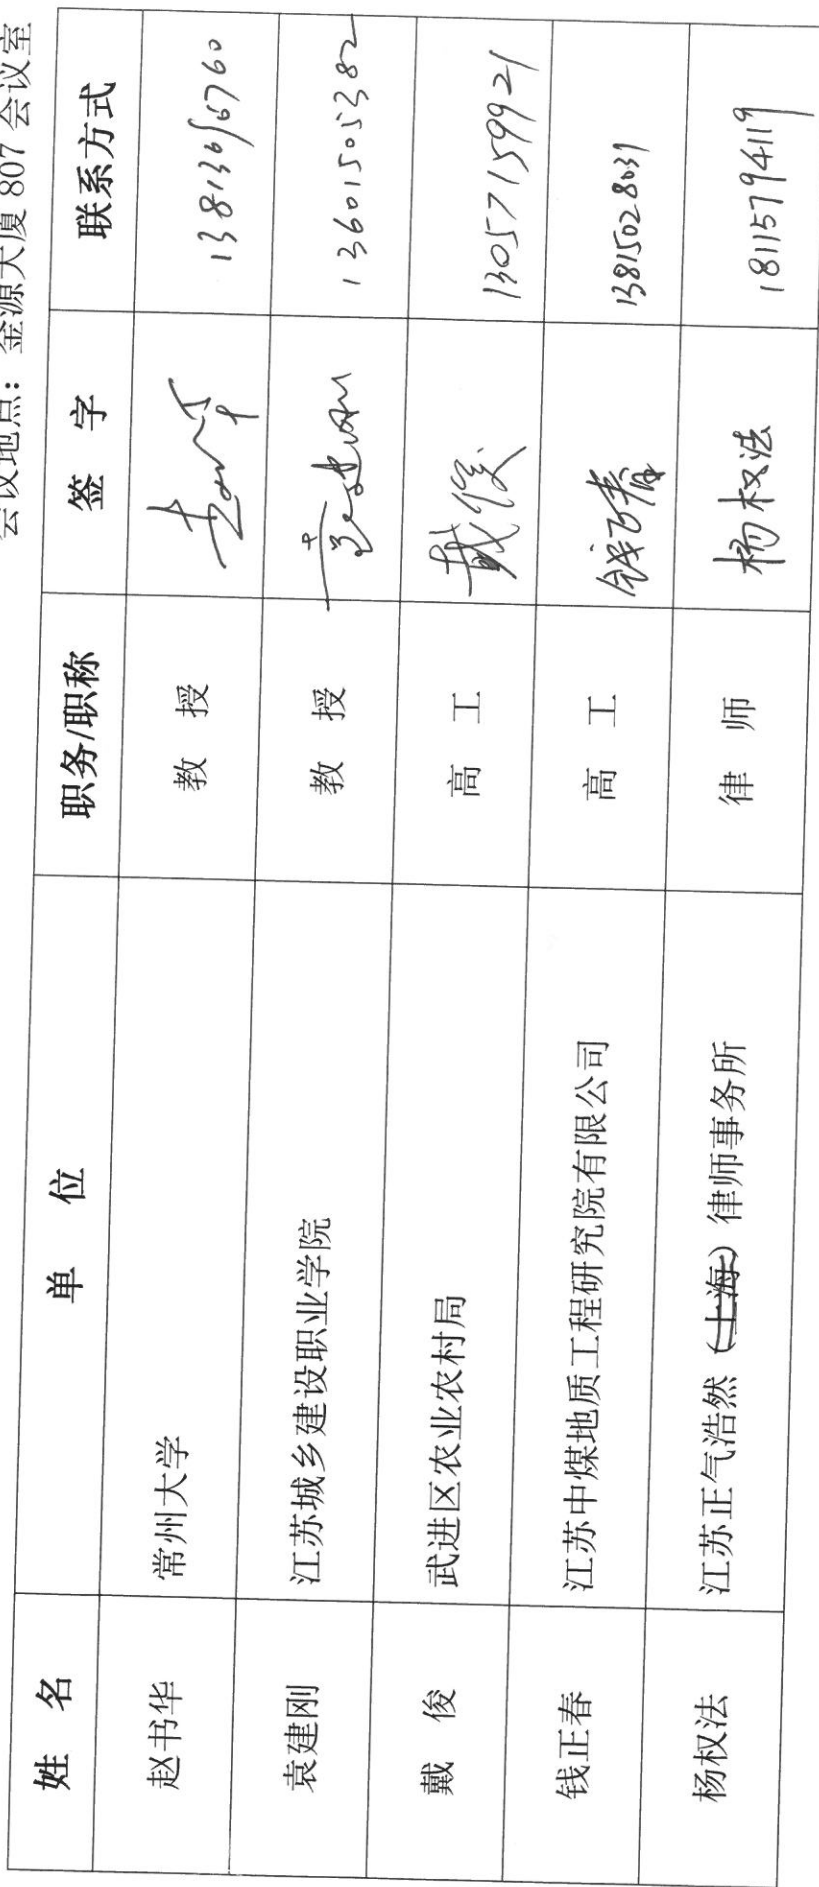 会议地点：金源大厦 807 会议室
姓 名 单 位 职务/职称 签 字 联系方式
赵书华 常州大学 教 授
袁建刚 江苏城乡建设职业学院 教 授 袁建刚 13601505382
戴 俊 武进区农业农村局 高 工 戴俊 13057159921
钱正春 江苏中煤地质工程研究院有限公司 高 工 钱正春
杨权法 江苏正气浩然（上海）律师事务所 律 师 杨权法 18115794119